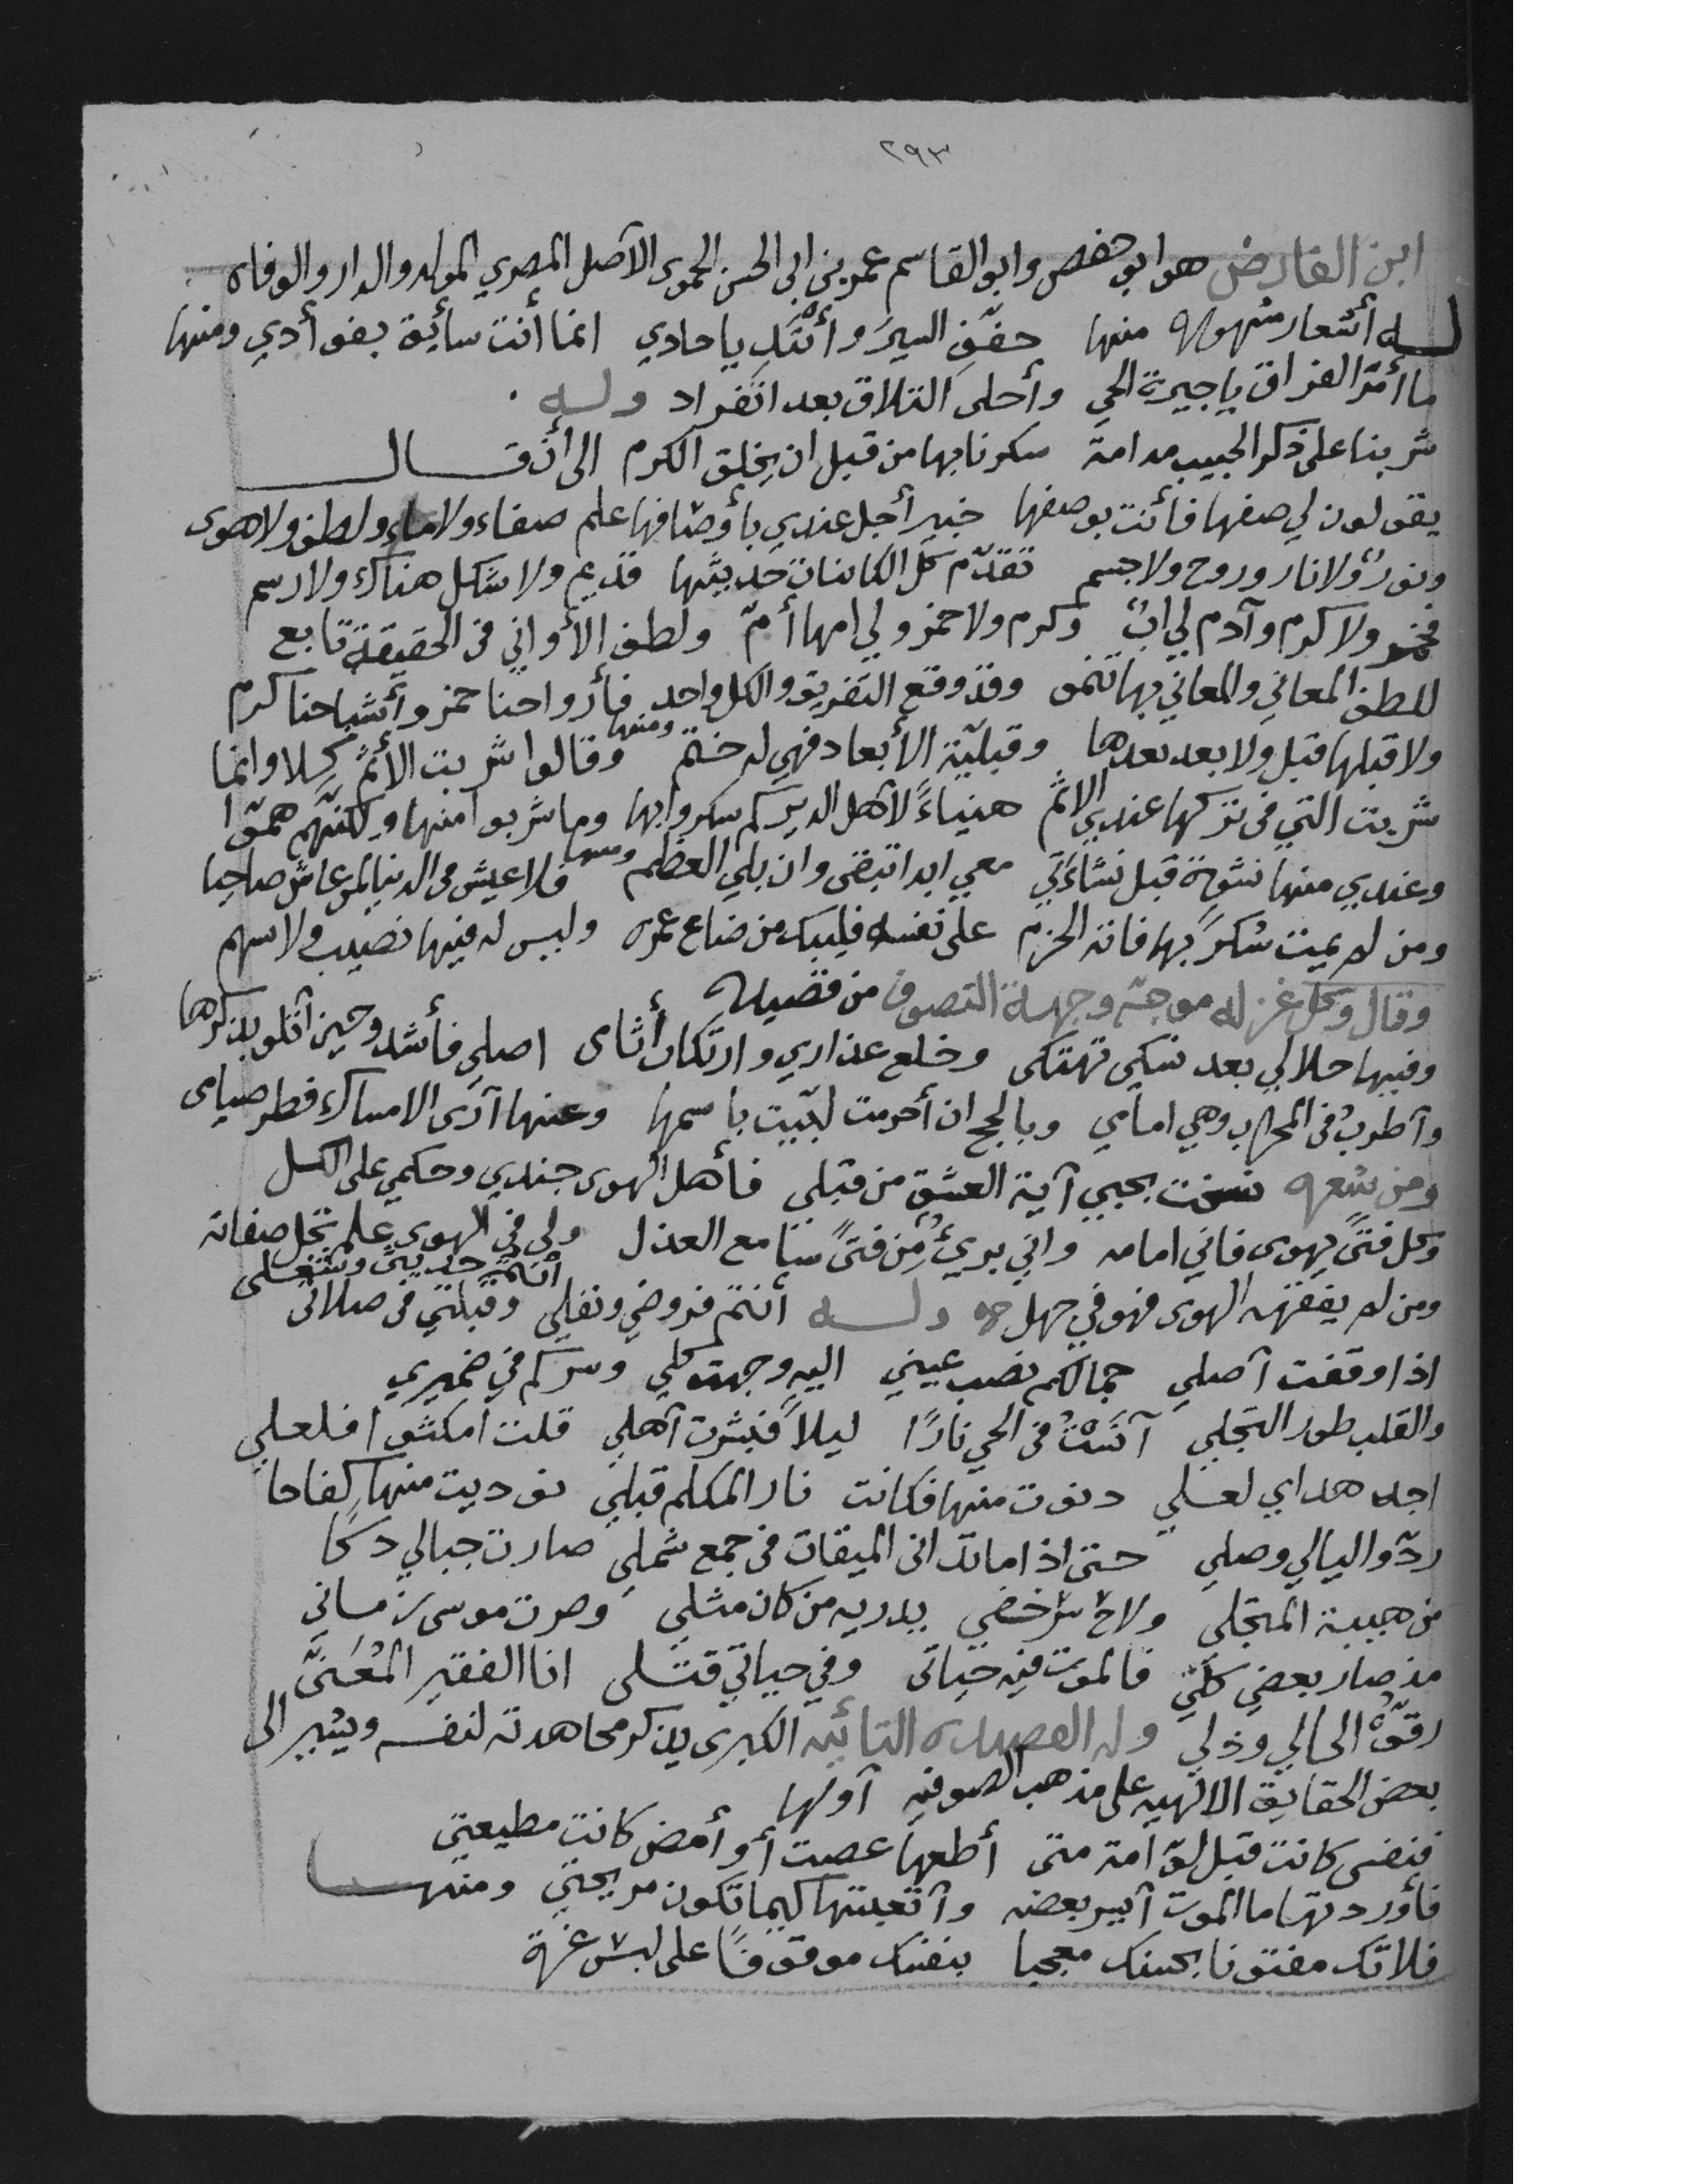 ٢٩٣
ابن الفارض هو ابو حفص وابو القاسم عمر بن ابي الحسن الحموى الاصل المصري المولد والدار والوفاه
له أشعار مشهوره منها خفّف السير وأتّئد يا حادي انما أنت سائق بفوأدي ومنها
ما أمرّ الفراق يا جيرة الحي وأحلى التلاق بعد انفراد وله
شربنا على ذكر الحبيب مدامة سكرنا بها من قبل ان يخلق الكرم الى أن قال
يقولون لي صفها فأنت بوصفها خبير أجل عندي بأوصافها علم صفاء ولا ماء ولطف ولا هوى
ونورٌ ولا نار وروح ولا جسم تقدّم كل الكائنات حديثها قديم ولا شكل هناك ولا رسم
فخمر ولا كرم وآدم لي ابٌ وكرم ولا خمر ولي امها أمّ ولطف الأواني في الحقيقة تابع
للطف المعاني والمعاني بها تنمو وقد وقع التفريق والكل واحد فأرواحنا خمر وأشباحنا كرم
ولا قبلها قبل ولا بعد بعدها وقبليّة الأبعاد فهي له ختم ومنها وقالوا شربت الأثمَ كلا وانما
شربت التي في تركها عندي الاثم هنياءً لاهل الدير كم سكروا بها وما شربوا منها ولكنّهم همّوا
وعندي منها نشوة قبل نشاءتي معي ابدا تبقى وان بلي العظم ومنها فلا عيش في الدنيا لمن عاش صاحيا
ومن لم يمت سكرًا بها فاته الحزم على نفسه فليبك من ضاع عمره وليس له فيها نصيب ولا سهم
وقال وكل غزله موجّه وجهة التصوف من قصيده
وفيها حلالي بعد نسكي تهتكى وخلع عذاري وارتكاب أثامى اصلي فأشدو حين أتلو بذكرها
وأطرب في المحراب وهي امامي وبالحج ان أحرمت لبّيت باسمها وعنها أرى الامساك فطر صيامى
ومن شعره نسخت بحبي آية العشق من قبلى فأهل الهوى جندي وحكمي على الكل
وكل فتىً يهوى فاني امامه واني بريءٌ من فتىً سامع العذل ولي في الهوى علم تجل صفاته
ومن لم يفقهه الهوى فهو في جهل وله أنتم فروضي ونفلي أنتم حديثي وشغلى وقبلتي في صلاتى
اذا وقفت آصلي جمالكم نصب عيني اليه وجهت كلي وسركم في ضميري
والقلب طور التجلي آنستُ في الحي نارًا ليلاً فبشرت آهلي قلت امكثوا فلعلي
اجد هداي لعلي دنوت منها فكانت نار المكلم قبلي نوديت منها كفاحا
ردّوا ليالي وصلي حتى اذا ما تدانى الميقات في جمع شملي صارت جبالي دكا
من هيبة المتجلي ولاح سر خفي يدريه من كان مثلي وصرت موسى زماني
مذ صار بعضي كلي فالموت فيه حياتى وفي حياتي قتلى انا الفقير المُعنىّ
رقّوْا لحالي وذلي وله القصيده التائيه الكبرى يذكر مجاهدته لنفسه ويشير الى
بعض الحقايق الالهيه على مذهب الصوفيه آولها
فنفسى كانت قبل لوّامة متى أطعها عصت أو أعص كانت مطيعتي
فأوردتها ما الموت آيسر بعضه وآتعبتها كيما تكون مريحتي ومنها
فلا تك مفتونا بحسنك معجبا بنفسك موقوفًا على لبس غرة